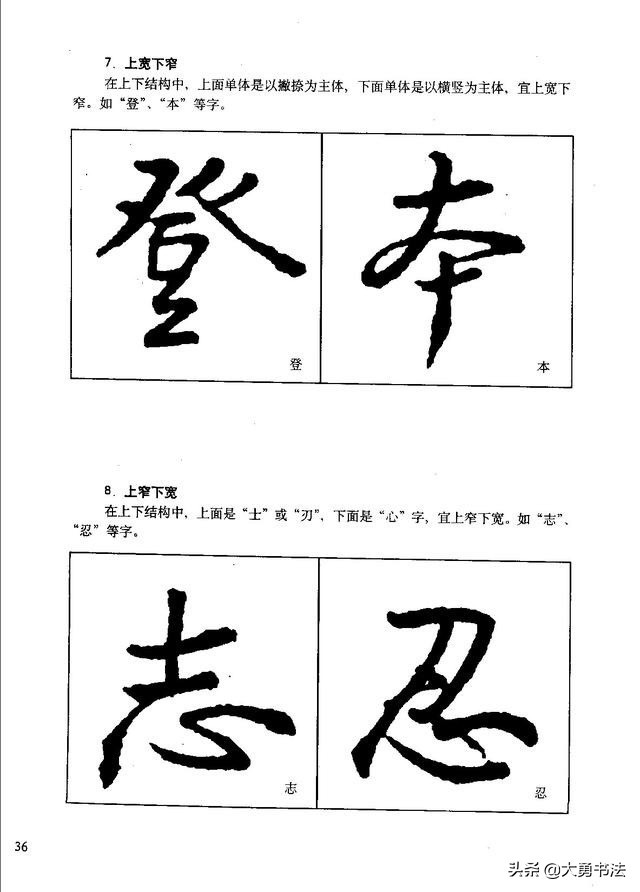 7. 上宽下窄
在上下结构中，上面单体是以撇捺为主体，下面单体是以横竖为主体，宜上宽下
窄。如“登”、“本”等字。
登 本
登 本
8. 上窄下宽
在上下结构中，上面是“士”或“刃”，下面是“心”字，宜上窄下宽。如“志”、
“忍”等字。
志 忍
志 忍
36
头条 @大勇书法